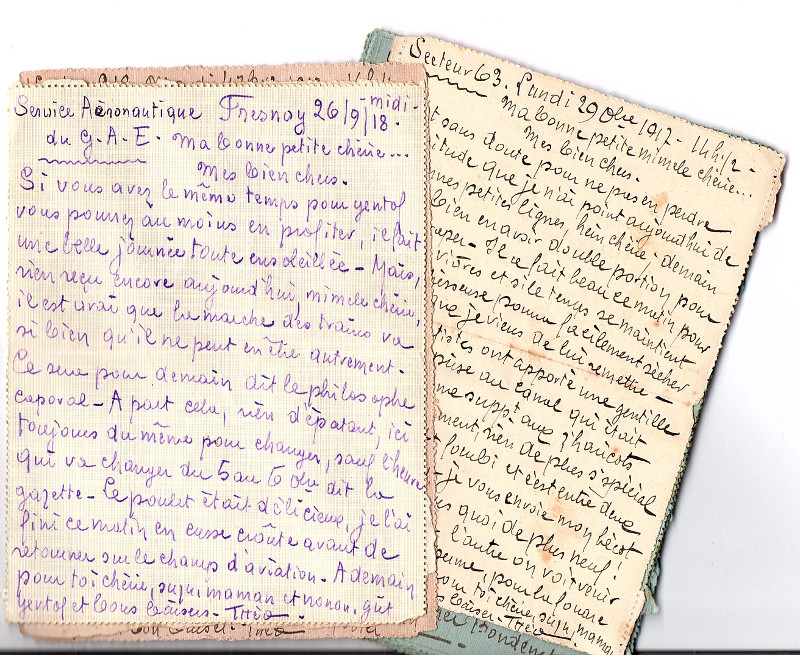 Service Aéronautique Fresnoy 26/9/18 - midi -
du G-A-E- Ma bonne petite chérie...
Mes bien chers.
Si vous avez le même temps pour gentol
vous pourrez au moins en profiter, il fait
une belle journée toute ensoleillée - Mais,
rien reçu encore aujourd'hui, mimele chérie,
il est vrai que la marche des trains va
si bien qu'il ne peut en être autrement -
Ce sera pour demain dit le philosophe
caporal - A part cela, rien d'épatant, ici
toujours du même pour changer, sauf l'heure
qui va changer du 5 au 6 obre dit la
gazette - Le poulet était délicieux, je l'ai
fini ce matin en casse croûte avant de
retourner sur le champ d'aviation - A demain
pour toi chérie, suju, maman et nonon, gut
gentol et bons baisers - Théo -
Secteur 63. Lundi 29 obre 1917 - 14h1/2 -
Ma bonne petite mimele chérie...
Mes bien chers.
t sans doute pour ne pas en perdre
itude que je n'ai point aujourd'hui de
nnes petites lignes, hein chérie - demain
bien en avoir double portion pour
per - Il a fait beau ce matin pour
vières et si le temps se maintient
isseuse pourra facilement sécher
que je viens de lui remettre -
tistes ont apporté une gentille
prise au canal qui était
me suppt aux z'haricots
ment, rien de plus s'pécial
t fourbi et c'est entre deux
- je vous envoie mon bécot
us quoi de plus neuf!
l'autre on voit venir
pour toi chérie, suju, maman
baiser - Théo -